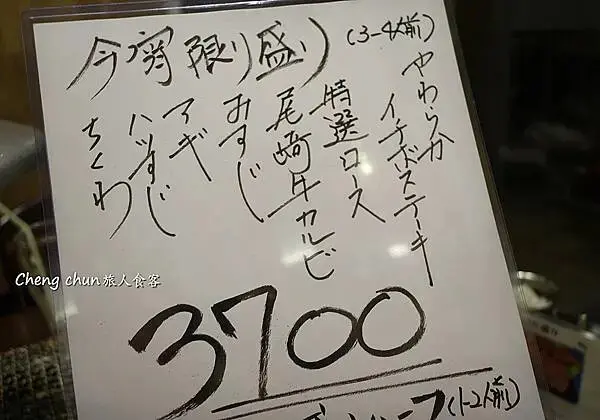 今宵限り盛り (3-4人前)
やわらか
イチボステーキ
特選ロース
尾崎牛カルビ
みすじ
マギ
ハツすじ
ちくわ
3700
(1-2人前)
Cheng chun 旅人食客